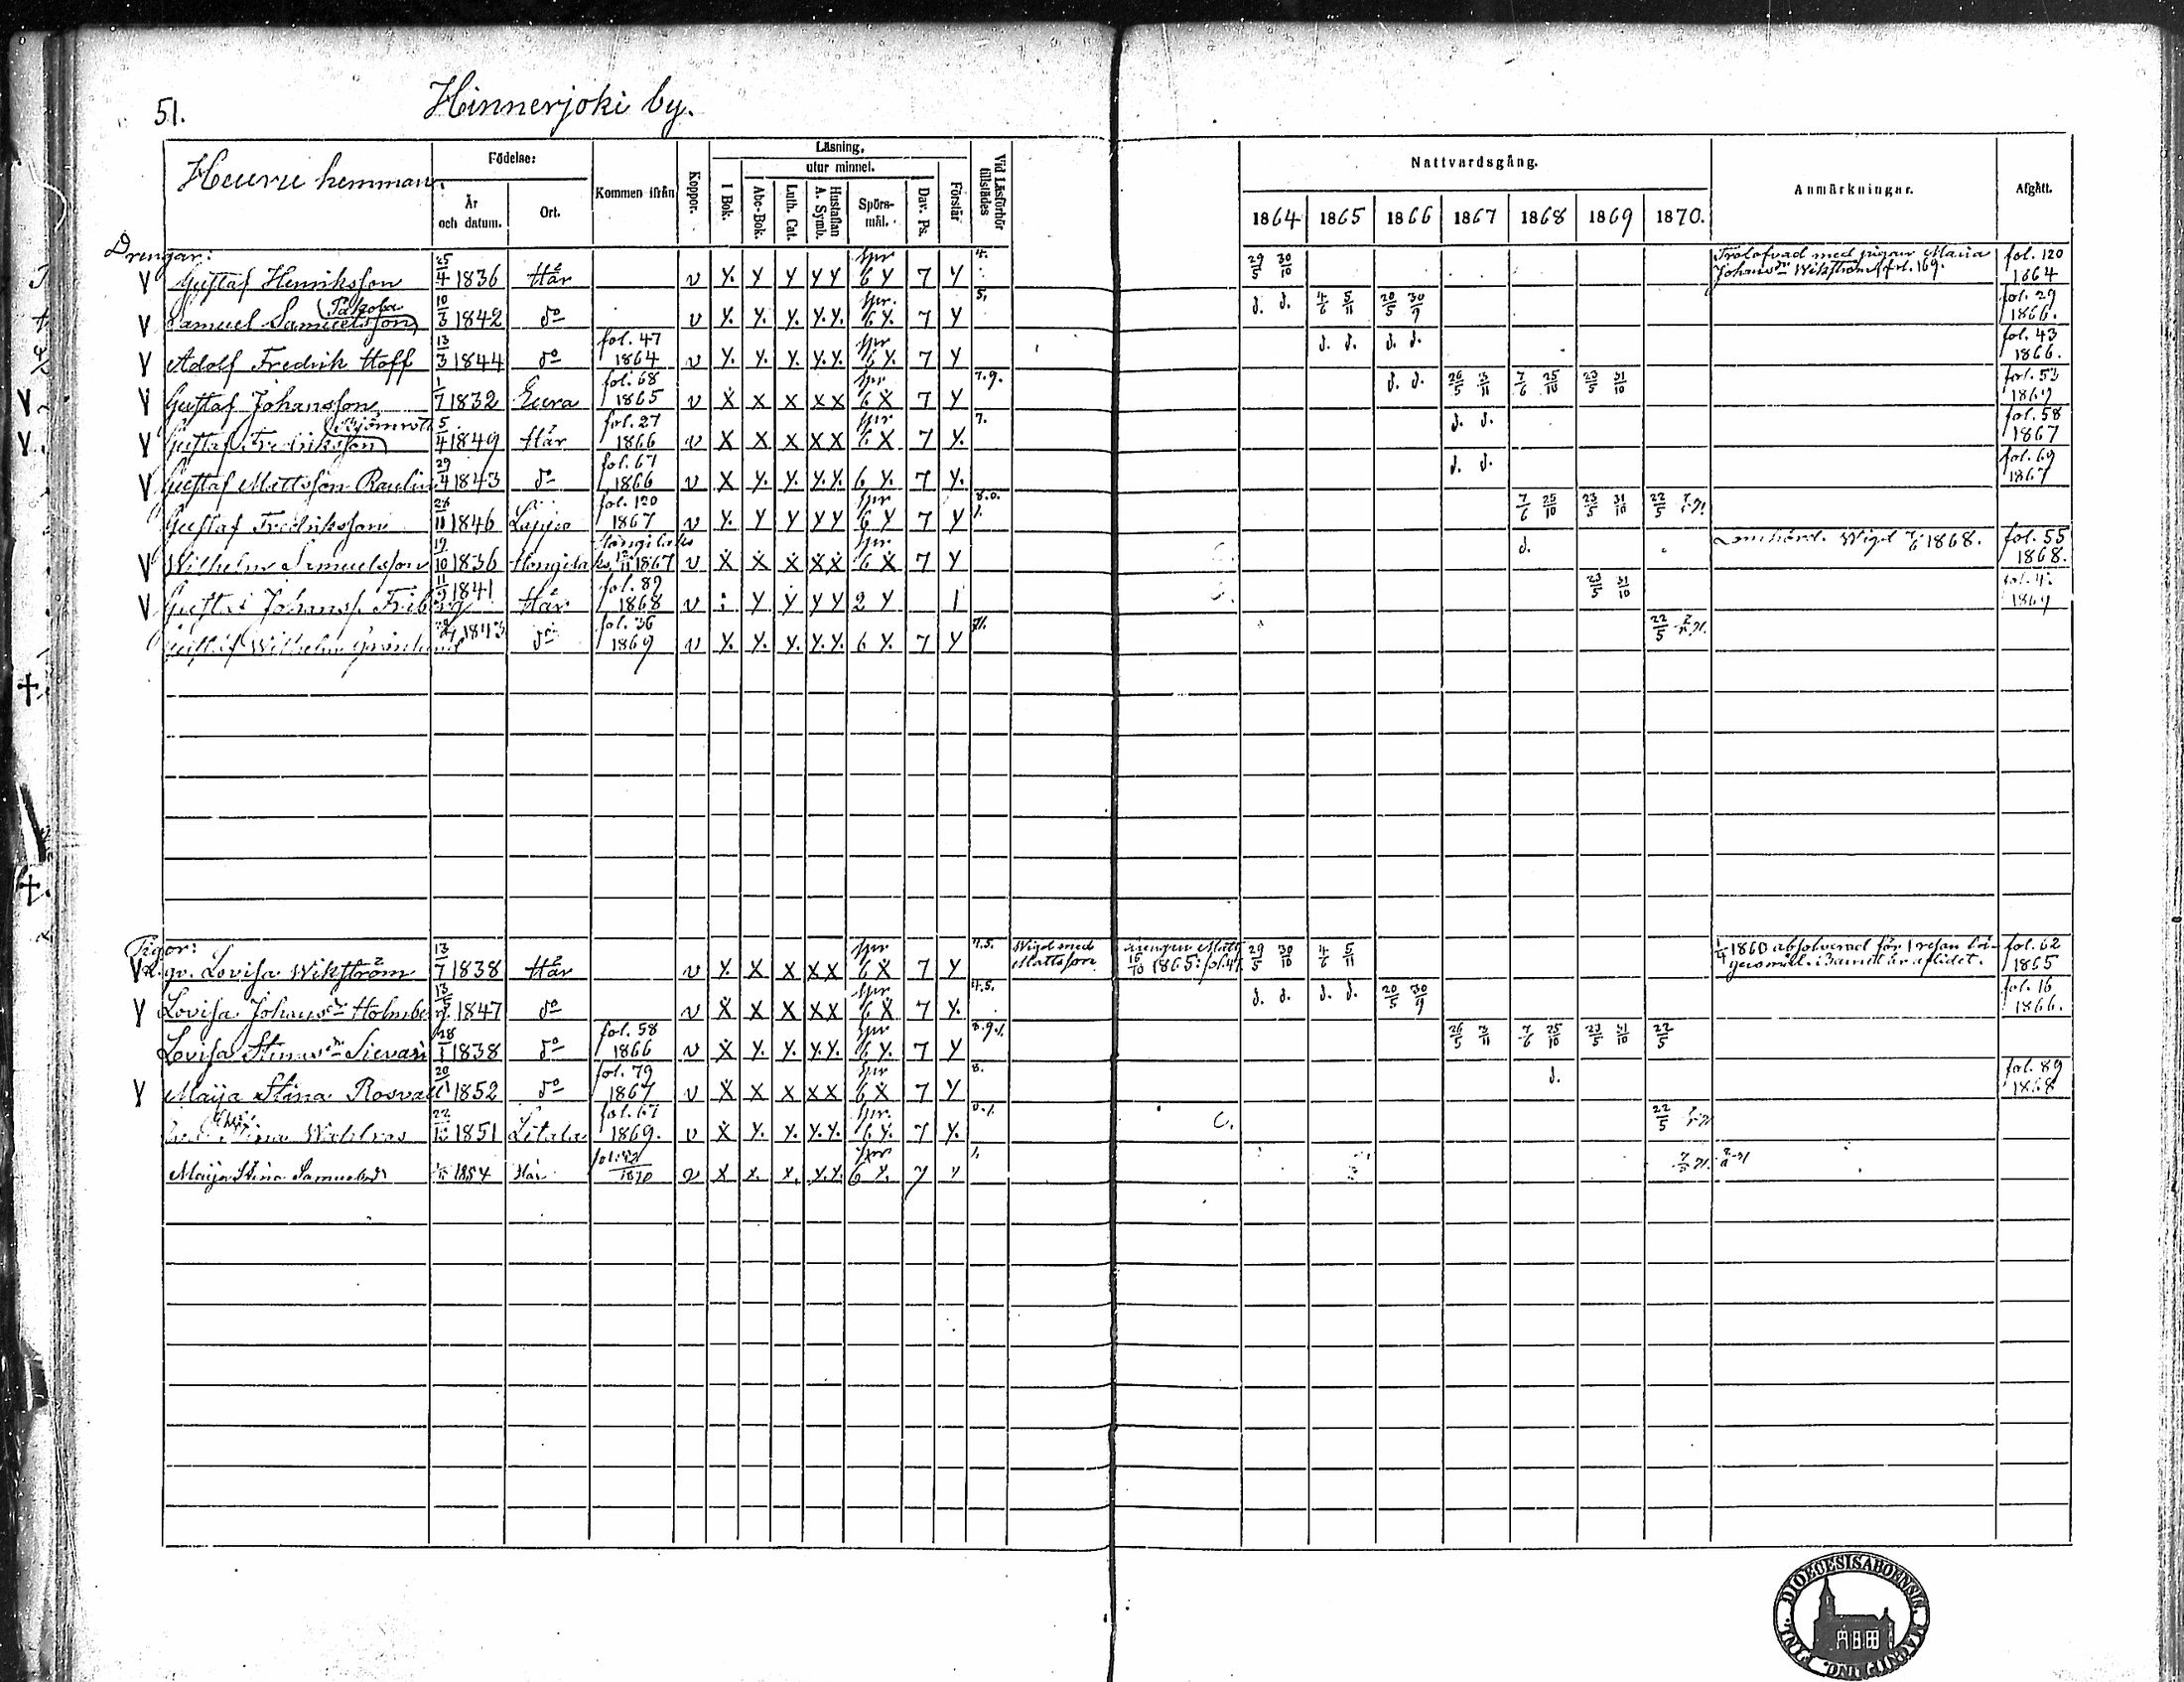 51.
Hinnerjoki by.
Heuru hemman.
Födelse:
År och datum.
Ort.
Kommen ifrån
Koppor.
Läsning,
I Bok.
utur minnet.
Abc-Bok.
Luth. Cat.
Hustaflan A. Symb.
Spörs-mål.
Dav. Ps.
Förstår
Vid Läsförhör tillstädes
Nattvardsgång.
1864 1865 1866 1867 1868 1869 1870.
Anmärkningar.
Afgått.
Drengar:
V Gustaf Henriksson 25/4 1836 Här v Y. Y Y Y Y spr 6 Y 7 Y 4. 29/5 30/10 Trolofvad med pigan Maria Johansdr Wikström fol. 169. fol. 120 1864
V Samuel Samuelsson Pakola 10/3 1842 do v Y. Y. Y. Y. Y. spr. 6 Y. 7 Y 5. d. d. 4/6 5/11 20/5 30/9 fol. 29 1866.
V Adolf Fredrik Hoff 13/3 1844 do fol. 47 1864 v Y. Y. Y. Y. Y. spr 6 Y. 7 Y d. d. d. d. fol. 43 1866.
V Gustaf Johansson 1/7 1832 Eura fol. 68 1865 v X X X X X spr 6 X 7 Y 7.9. d. d. 26/5 3/11 7/6 25/10 23/5 31/10 fol. 53 1869
V Gustaf Fredriksson 5/4 1849 Här fol. 27 1866 v X X X X X spr 6 X 7 Y. 7. d. d. fol. 58 1867
V Gustaf Mattsson Raulin 29/4 1843 do fol. 67 1866 v X Y. Y. Y. Y. 6 Y. 7 Y. d. d. fol. 69 1867
Gustaf Fredriksson 28/11 1846 Lappo fol. 120 1867 v Y. Y Y Y Y spr 6 Y 7 Y 8.0. 7/6 25/10 23/5 31/10 22/5
V Wilhelm Samuelsson 19/10 1836 Hongila 1867 v X X X X X spr 6 X 7 Y d. Wigd 7/6 1868. fol. 55 1868.
V Gustaf Johanss. Friberg 11/9 1841 Här fol. 89 1868 v Y Y Y Y 2 Y 1 23/5 31/10 1869
Gustaf Wilhelm Grönlund 1843 do fol. 36 1869 v Y. Y. Y. Y. Y. 6 Y. 7 Y 22/5
Pigor:
V Q. qv. Lovisa Wikström 13/7 1838 Här v Y. X X X X spr 6 X 7 Y 4.5. Wigd med drengen Matts Mattsson 15/10 1865: fol. 47. 29/5 30/10 4/6 5/11 1/4 1860 absolverad för 1 resan lägersmål. Barnet är aflidet. fol. 62 1865
V Lovisa Johansdr Holmberg 1847 do v X X X X X spr 6 X 7 Y. 4.5. d. d. d. d. 20/5 30/9 fol. 16 1866.
Lovisa Simonsdr Sievari 28/1 1838 do fol. 58 1866 v X Y. Y. Y. Y. spr 6 Y. 7 Y 8.9. 26/5 3/11 7/6 25/10 23/5 31/10 22/5
V Maija Stina Rosvall 20/1 1852 do fol. 79 1867 v X X X X X spr 6 X 7 Y 8. d. fol. 89 1868
Stina Wahlros 22/12 1851 Letala fol. 67 1869. v X Y. Y. Y. Y. spr. 6 Y. 7 Y. 22/5
Maija Stina Samuelsdr 1854 Här fol. 42 1870 v x x. x. y. y. spr 6 Y. 7 Y
FINL. DIOECESIS ABOENSIS. MAGNI P. INO.